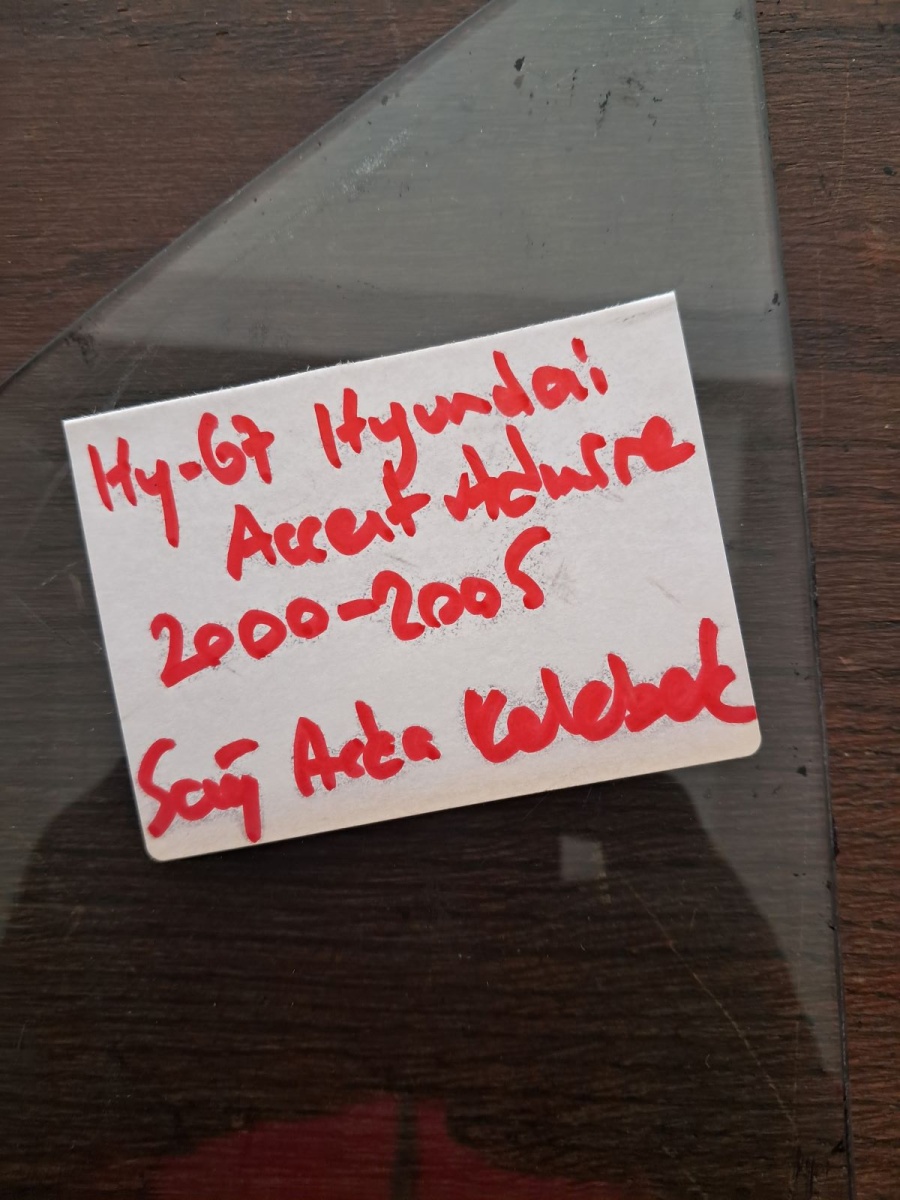 Hy-67 Hyundai
Accent Admire
2000-2005
Sağ Arka Kelebek